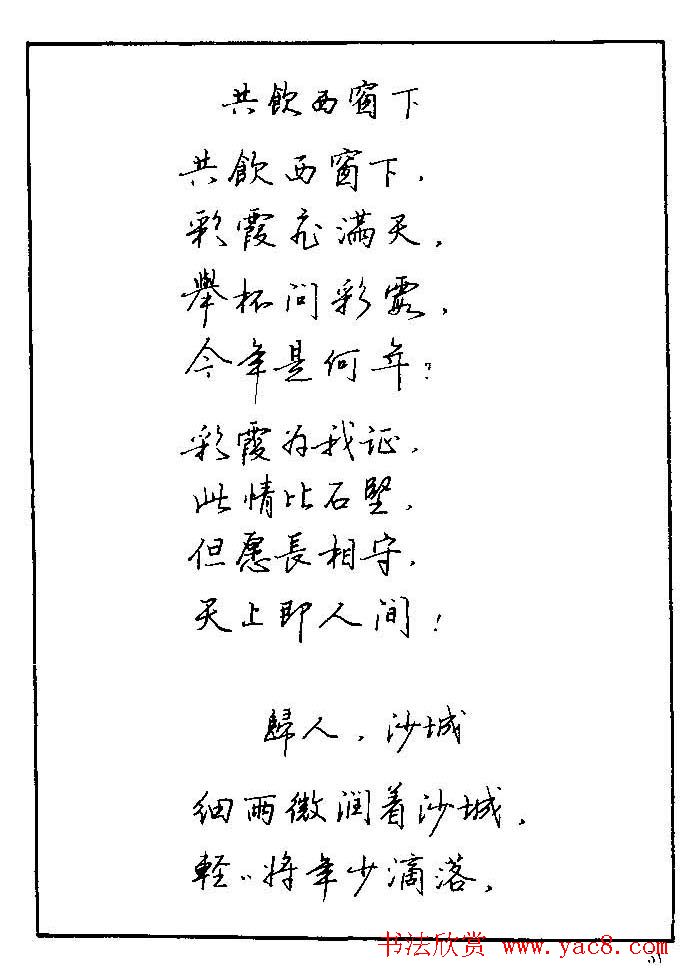 共飲西窗下
共飲西窗下，
彩霞飛滿天，
舉杯问彩霞，
今年是何年？
彩霞为我证，
此情比石堅，
但愿長相守，
天上即人间！
歸人，沙城
细雨微润着沙城，
輕〃将年少滴落，
书法欣赏 www.yac8.com